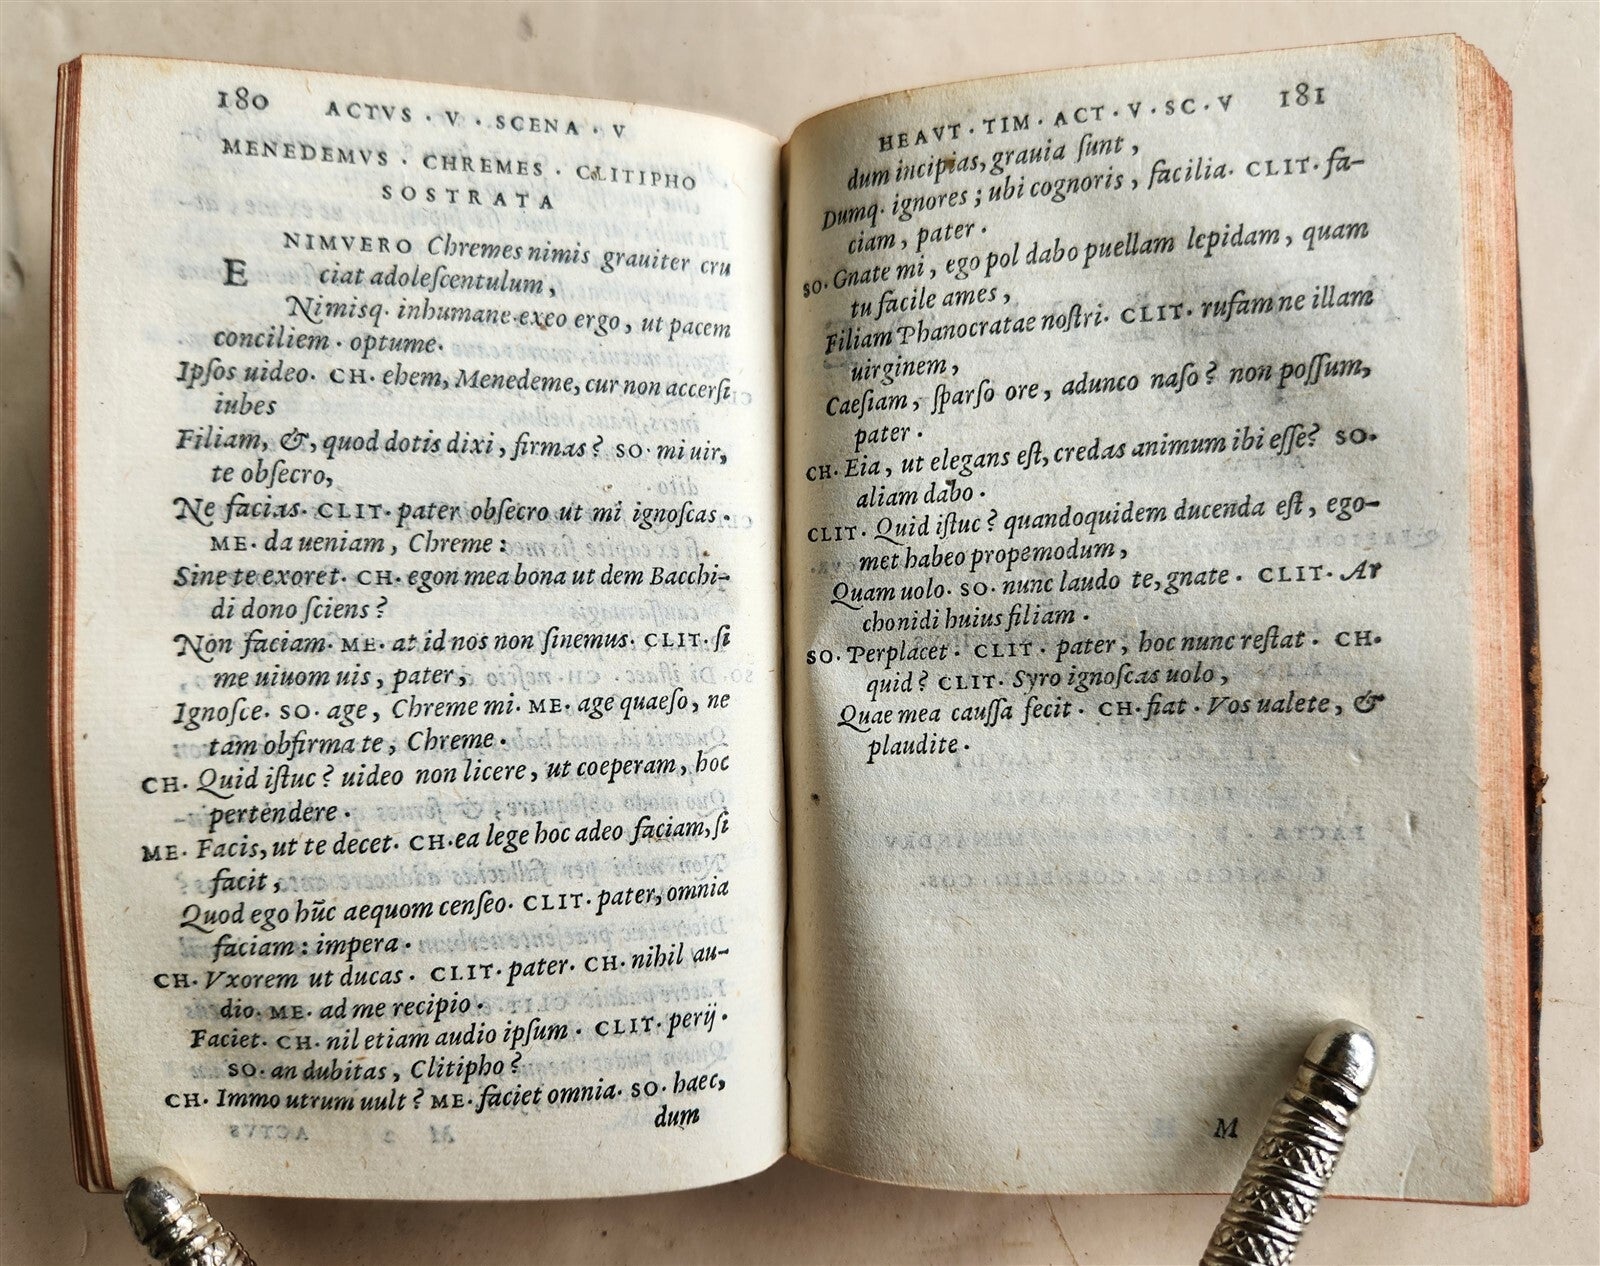 180 ACTVS · V · SCENA · V
MENEDEMVS · CHREMES · CLITIPHO
SOSTRATA
NIMVERO Chremes nimis grauiter cru
E ciat adoleſcentulum,
Nimisq. inhumane. exeo ergo, ut pacem
conciliem · optume.
Ipſos uideo. CH. ehem, Menedeme, cur non accerſi
iubes
Filiam, &, quod dotis dixi, firmas? SO. mi uir,
te obſecro,
Ne facias. CLIT. pater obſecro ut mi ignoſcas.
ME. da ueniam, Chreme:
Sine te exoret. CH. egon mea bona ut dem Bacchi-
di dono ſciens?
Non faciam. ME. at id nos non ſinemus. CLIT. ſi
me uiuom uis, pater,
Ignoſce. SO. age, Chreme mi. ME. age quaeſo, ne
tam obfirma te, Chreme.
CH. Quid iſtuc? uideo non licere, ut coeperam, hoc
pertendere.
ME. Facis, ut te decet. CH. ea lege hoc adeo faciam, ſi
facit,
Quod ego hūc aequom cenſeo. CLIT. pater, omnia
faciam: impera.
CH. Vxorem ut ducas. CLIT. pater. CH. nihil au-
dio. ME. ad me recipio.
Faciet. CH. nil etiam audio ipſum. CLIT. perij.
SO. an dubitas, Clitipho?
CH. Immo utrum uult? ME. faciet omnia. SO. haec,
dum
HEAVT · TIM · ACT · V · SC · V 181
dum incipias, grauia ſunt,
Dumq. ignores; ubi cognoris, facilia. CLIT. fa-
ciam, pater.
SO. Gnate mi, ego pol dabo puellam lepidam, quam
tu facile ames,
Filiam Phanocratae noſtri. CLIT. rufamne illam
uirginem,
Caeſiam, ſparſo ore, adunco naſo? non poſſum,
pater.
CH. Eia, ut elegans eſt, credas animum ibi eſſe? SO.
aliam dabo.
CLIT. Quid iſtuc? quandoquidem ducenda eſt, ego-
met habeo propemodum,
Quam uolo. SO. nunc laudo te, gnate. CLIT. Ar
chonidi huius filiam.
SO. Perplacet. CLIT. pater, hoc nunc reſtat. CH.
quid? CLIT. Syro ignoſcas uolo,
Quae mea cauſſa fecit. CH. fiat. Vos ualete, &
plaudite.
M